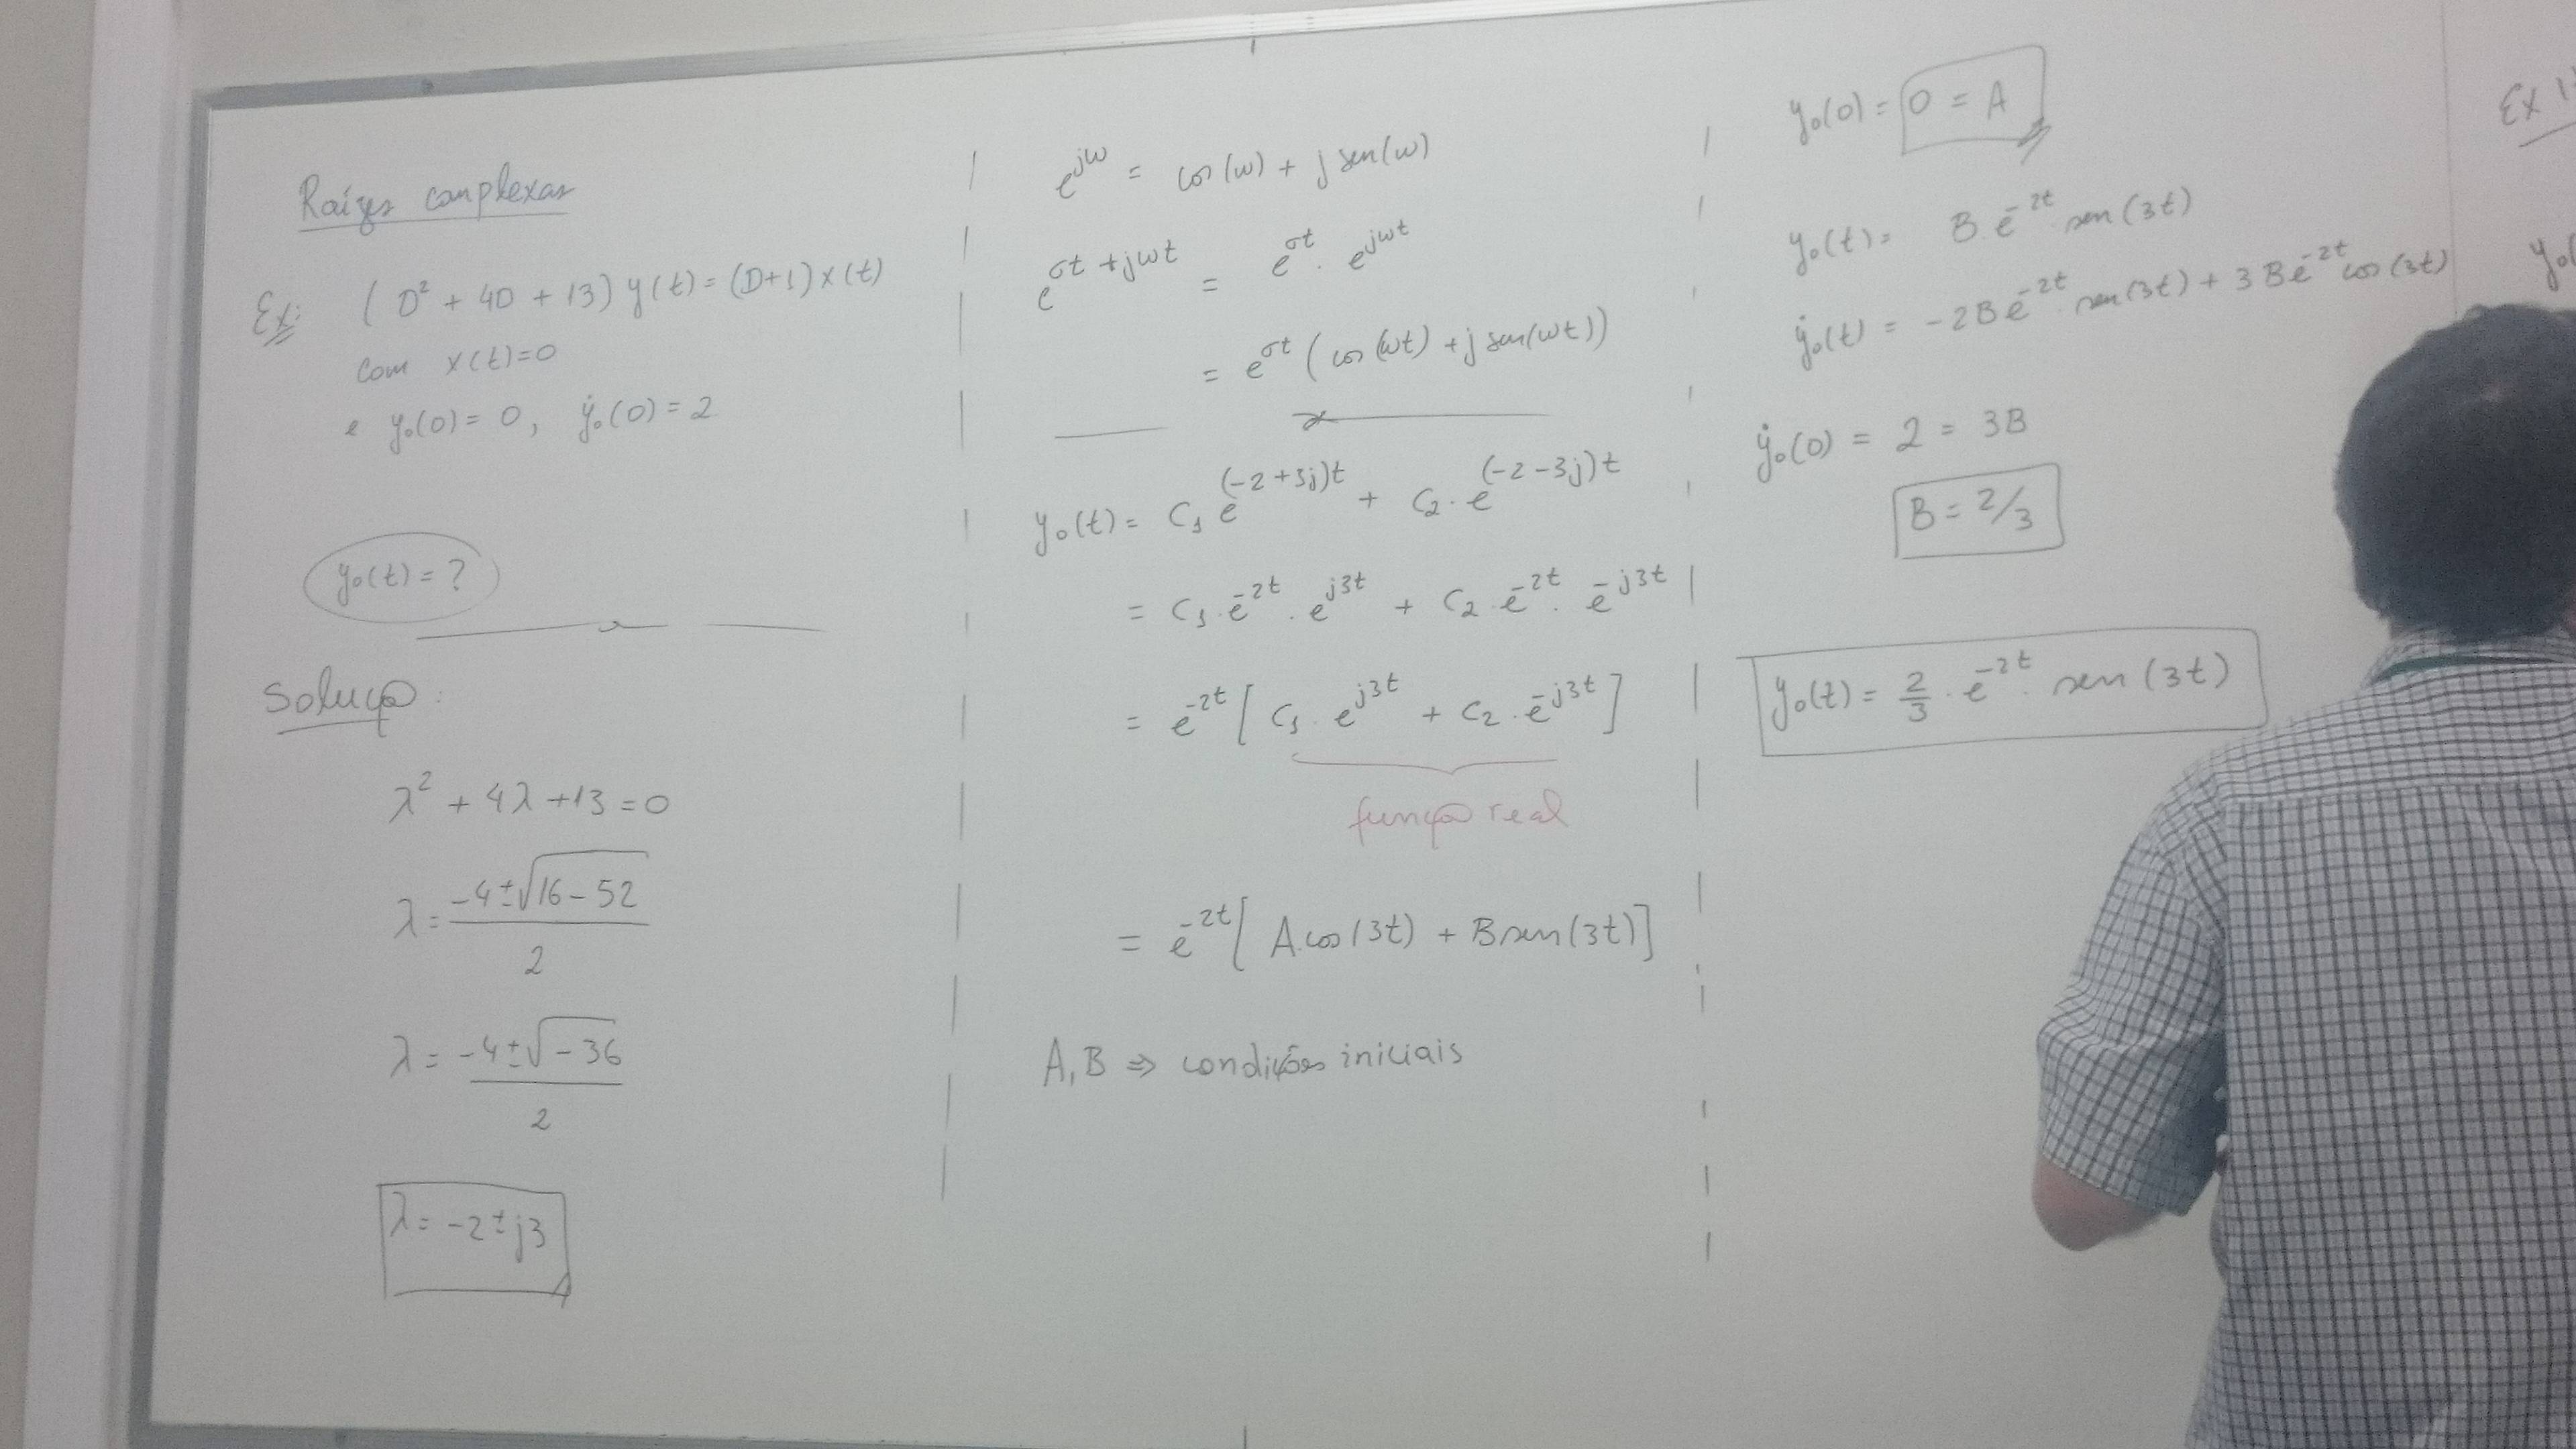 Raízes complexas
Ex: (D² + 4D + 13) y(t) = (D+1) x(t)
com x(t)=0
e y₀(0) = 0, ẏ₀(0) = 2
y₀(t) = ?
Solução:
λ² + 4λ + 13 = 0
λ = (-4 ± √(16 - 52)) / 2
λ = (-4 ± √(-36)) / 2
λ = -2 ± j3
e^(jω) = cos(ω) + j sen(ω)
e^(σt + jωt) = e^(σt) · e^(jωt)
= e^(σt) (cos(ωt) + j sen(ωt))
y₀(t) = C₁ e^((-2+3j)t) + C₂ · e^((-2-3j)t)
= C₁ · e^(-2t) · e^(j3t) + C₂ · e^(-2t) · e^(-j3t)
= e^(-2t) [ C₁ · e^(j3t) + C₂ · e^(-j3t) ]
função real
= e^(-2t) [ A·cos(3t) + B sen(3t) ]
A, B ⇒ condições iniciais
y₀(0) = 0 = A
y₀(t) = B · e^(-2t) · sen(3t)
ẏ₀(t) = -2B e^(-2t) · sen(3t) + 3B e^(-2t) cos(3t)
ẏ₀(0) = 2 = 3B
B = 2/3
y₀(t) = 2/3 · e^(-2t) · sen(3t)
Ex
y₀(